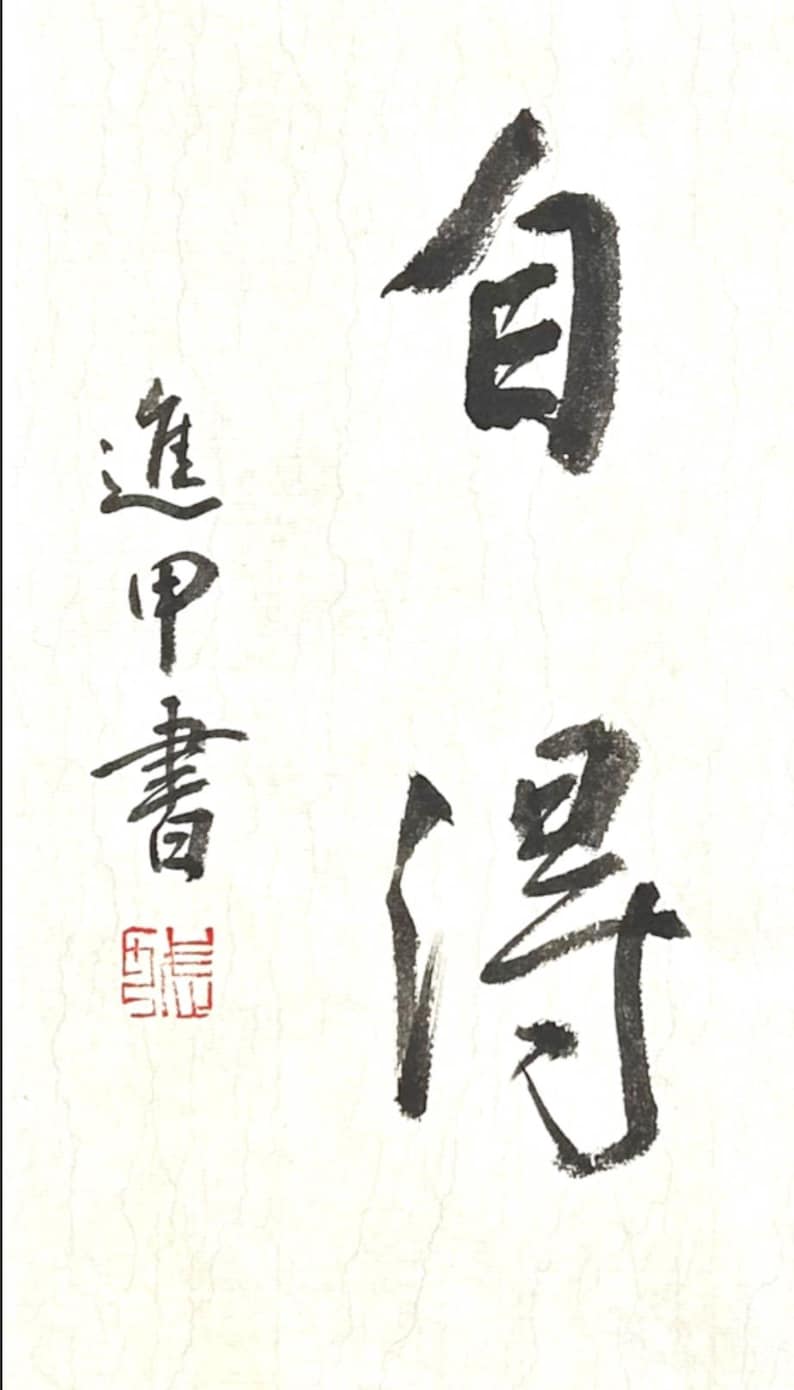 自得
進甲書